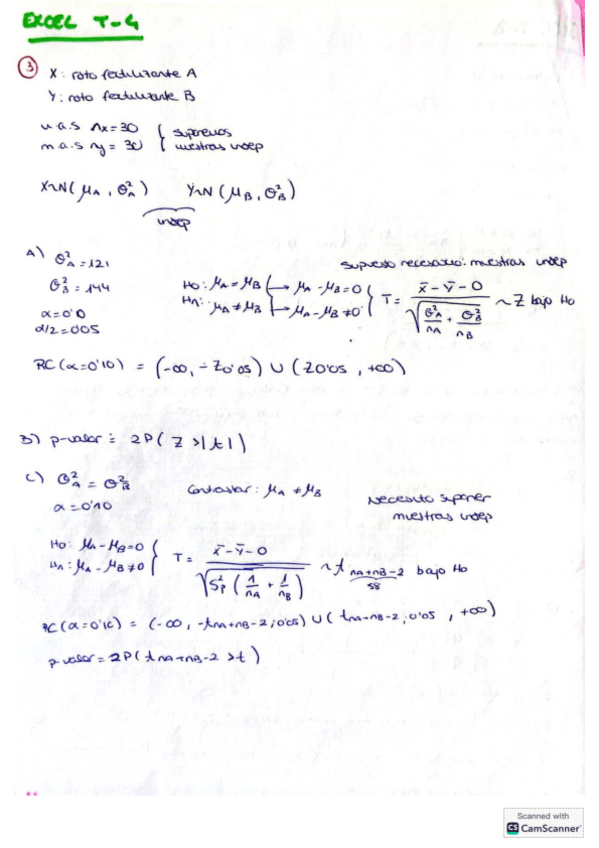 EXCEL T-4
③ X: rdto fertilizante A
Y: rdto fertilizante B
m.a.s nx=30 } suponemos
m.a.s ny=30 } muestras indep
X~N(μA, σ²A) Y~N(μB, σ²B)
indep
A) σ²A = 121
supuesto necesario: muestras indep
σ²B = 144
H0: μA = μB → μA - μB = 0
H1: μA ≠ μB → μA - μB ≠ 0
T = (x̄ - ȳ - 0) / √(σ²A/nA + σ²B/nB) ~ Z bajo H0
α = 0'10
α/2 = 0'05
RC(α=0'10) = (-∞, -Z0'05) ∪ (Z0'05, +∞)
B) p-valor = 2P(Z > |t|)
C) σ²A = σ²B
Contrastar: μA ≠ μB
Necesito suponer
muestras indep
α = 0'10
H0: μA - μB = 0
H1: μA - μB ≠ 0
T = (x̄ - ȳ - 0) / √(S²p (1/nA + 1/nB)) ~ t nA+nB-2 bajo H0
58
RC(α=0'10) = (-∞, -tnA+nB-2; 0'05) ∪ (tnA+nB-2; 0'05, +∞)
p-valor = 2P(tnA+nB-2 > t)
Scanned with
CS CamScanner